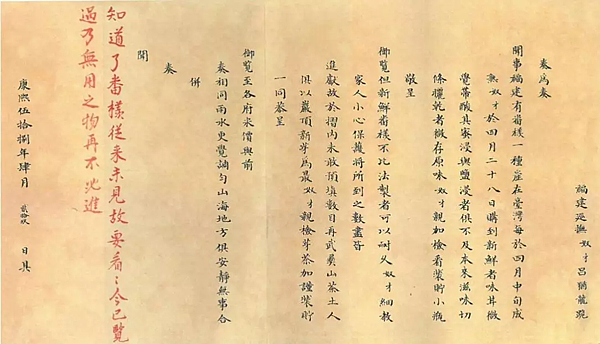 福建巡撫奴才呂猶龍跪
奏為奏
聞事福建有番樣一種產在臺灣每於四月中旬成
熟奴才於四月二十八日購到新鮮者味甘微
覺帶酸其蜜浸與鹽浸者俱不及本來滋味切
條曬乾者微存原味奴才親加檢看裝貯小瓶
敬呈
御覽但新鮮番樣不比法製者可以耐久奴才細教
家人小心保護將所到之數盡皆
進獻故於摺內未敢預填數目再武彝山茶土人
俱以巖頂新芽為最奴才親檢芽茶加謹裝貯
一同恭呈
御覽至各府米價與前
奏相同雨水更覺調勻山海地方俱安靜無事合
併
奏
聞
知道了番樣從來未見故要看〻今已覽
過乃無用之物再不必進
康熙伍拾捌年肆月 日具